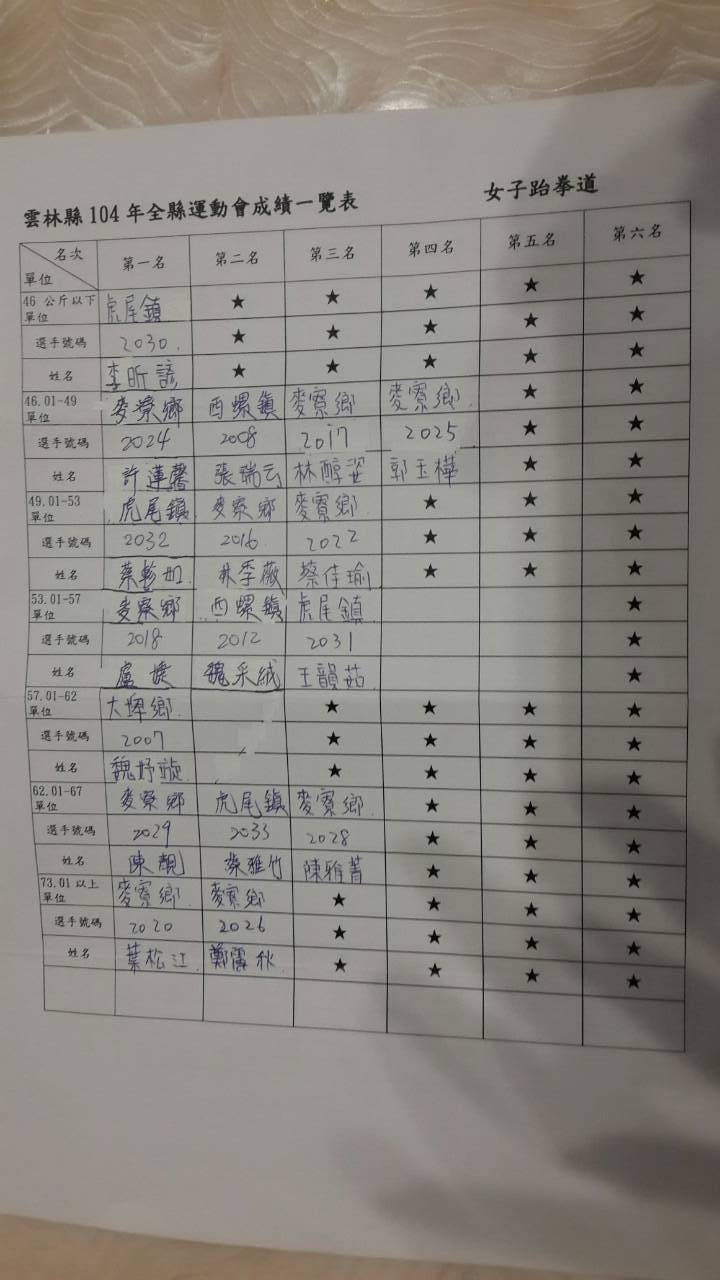 雲林縣 104 年全縣運動會成績一覽表 女子跆拳道
名次 單位 第一名 第二名 第三名 第四名 第五名 第六名
46 公斤以下 單位 虎尾鎮 ★ ★ ★ ★ ★
選手號碼 2030 ★ ★ ★ ★ ★
姓名 李昕諺 ★ ★ ★ ★ ★
46.01-49 單位 麥寮鄉 西螺鎮 麥寮鄉 麥寮鄉 ★ ★
選手號碼 2024 2008 2017 2025 ★ ★
姓名 許蓮馨 張瑞云 林醇姿 郭玉樺 ★ ★
49.01-53 單位 虎尾鎮 麥寮鄉 麥寮鄉 ★ ★ ★
選手號碼 2032 2016 2022 ★ ★ ★
姓名 林季薇 蔡佳瑜 ★ ★ ★
53.01-57 單位 麥寮鄉 西螺鎮 虎尾鎮 ★
選手號碼 2018 2012 2031 ★
姓名 盧婕 魏采絨 王韻茹 ★
57.01-62 單位 大埤鄉 ★ ★ ★ ★
選手號碼 2007 ★ ★ ★ ★
姓名 魏妤璇 ★ ★ ★ ★
62.01-67 單位 麥寮鄉 虎尾鎮 麥寮鄉 ★ ★ ★
選手號碼 2029 2033 2028 ★ ★ ★
姓名 陳靚 蔡雅竹 陳雅菁 ★ ★ ★
73.01 以上 單位 麥寮鄉 麥寮鄉 ★ ★ ★ ★
選手號碼 2020 2026 ★ ★ ★ ★
姓名 葉松江 鄭霞秋 ★ ★ ★ ★